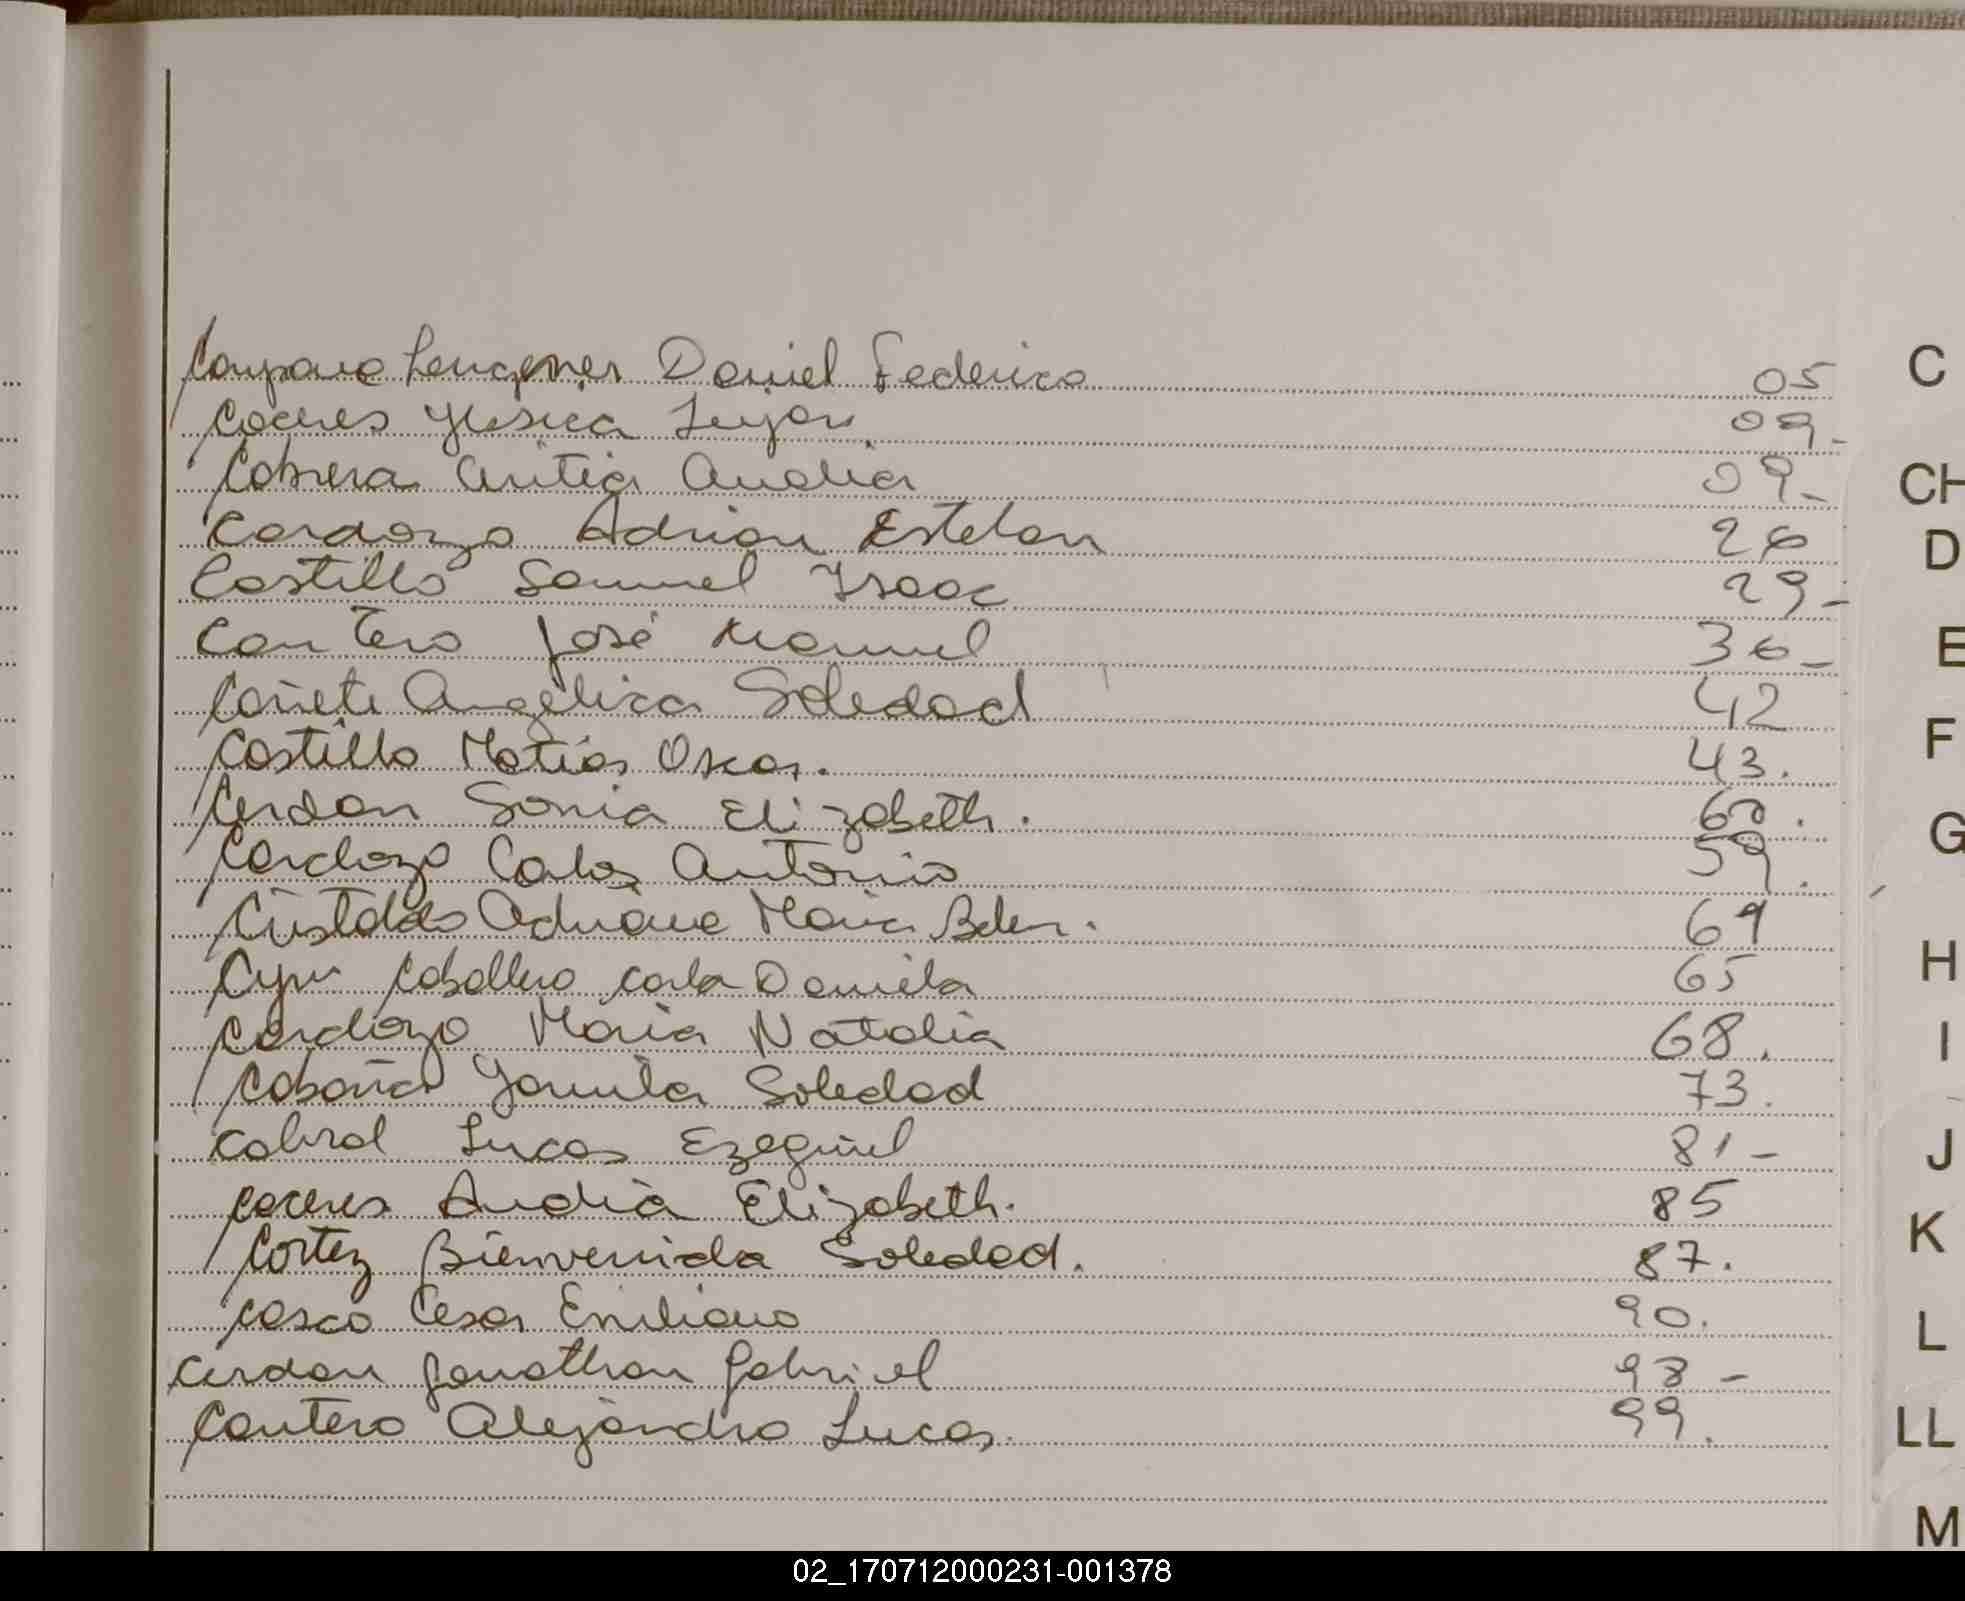 Daniel Federico 05
Caceres Yesica Lujan. 09-
Cabrera Cintia Analia 09-
Cardozo Adrian Esteban 26
Castillo Samuel Isaac 29-
Cantero José Manuel 36-
Cañete Angélica Soledad 42
Castillo Matias Oscar. 43.
Cerdan Sonia Elizabeth. 60.
Cardozo Carlos Antonio 59.
Adriana Maria Belen. 69
Caballero Carla Daniela 65
Cardozo Maria Natalia 68.
Yamila Soledad 73.
Cabral Lucas Ezequiel 81-
Caceres Analia Elizabeth. 85
Cortez Bienvenida Soledad. 87.
Casco Cesar Emiliano 90.
Cerdan Jonathan Gabriel 98-
Cantero Alejandro Lucas. 99.
C
CH
D
E
F
G
H
I
J
K
L
LL
M
02_170712000231-001378